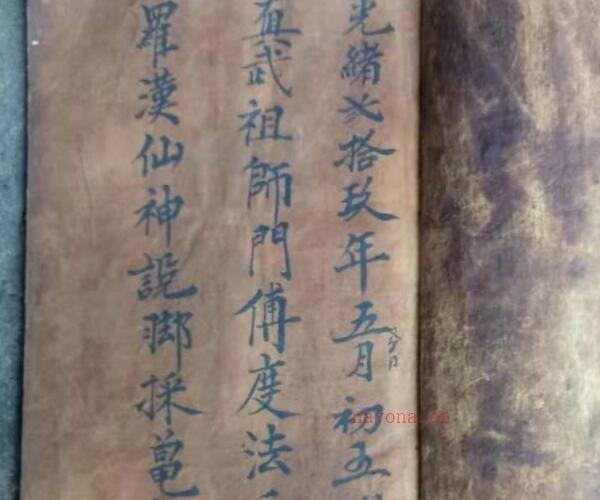 光緒弍拾玖年五月初五
真武祖師門傅度法
羅漢仙神説脚採
nayona.cn